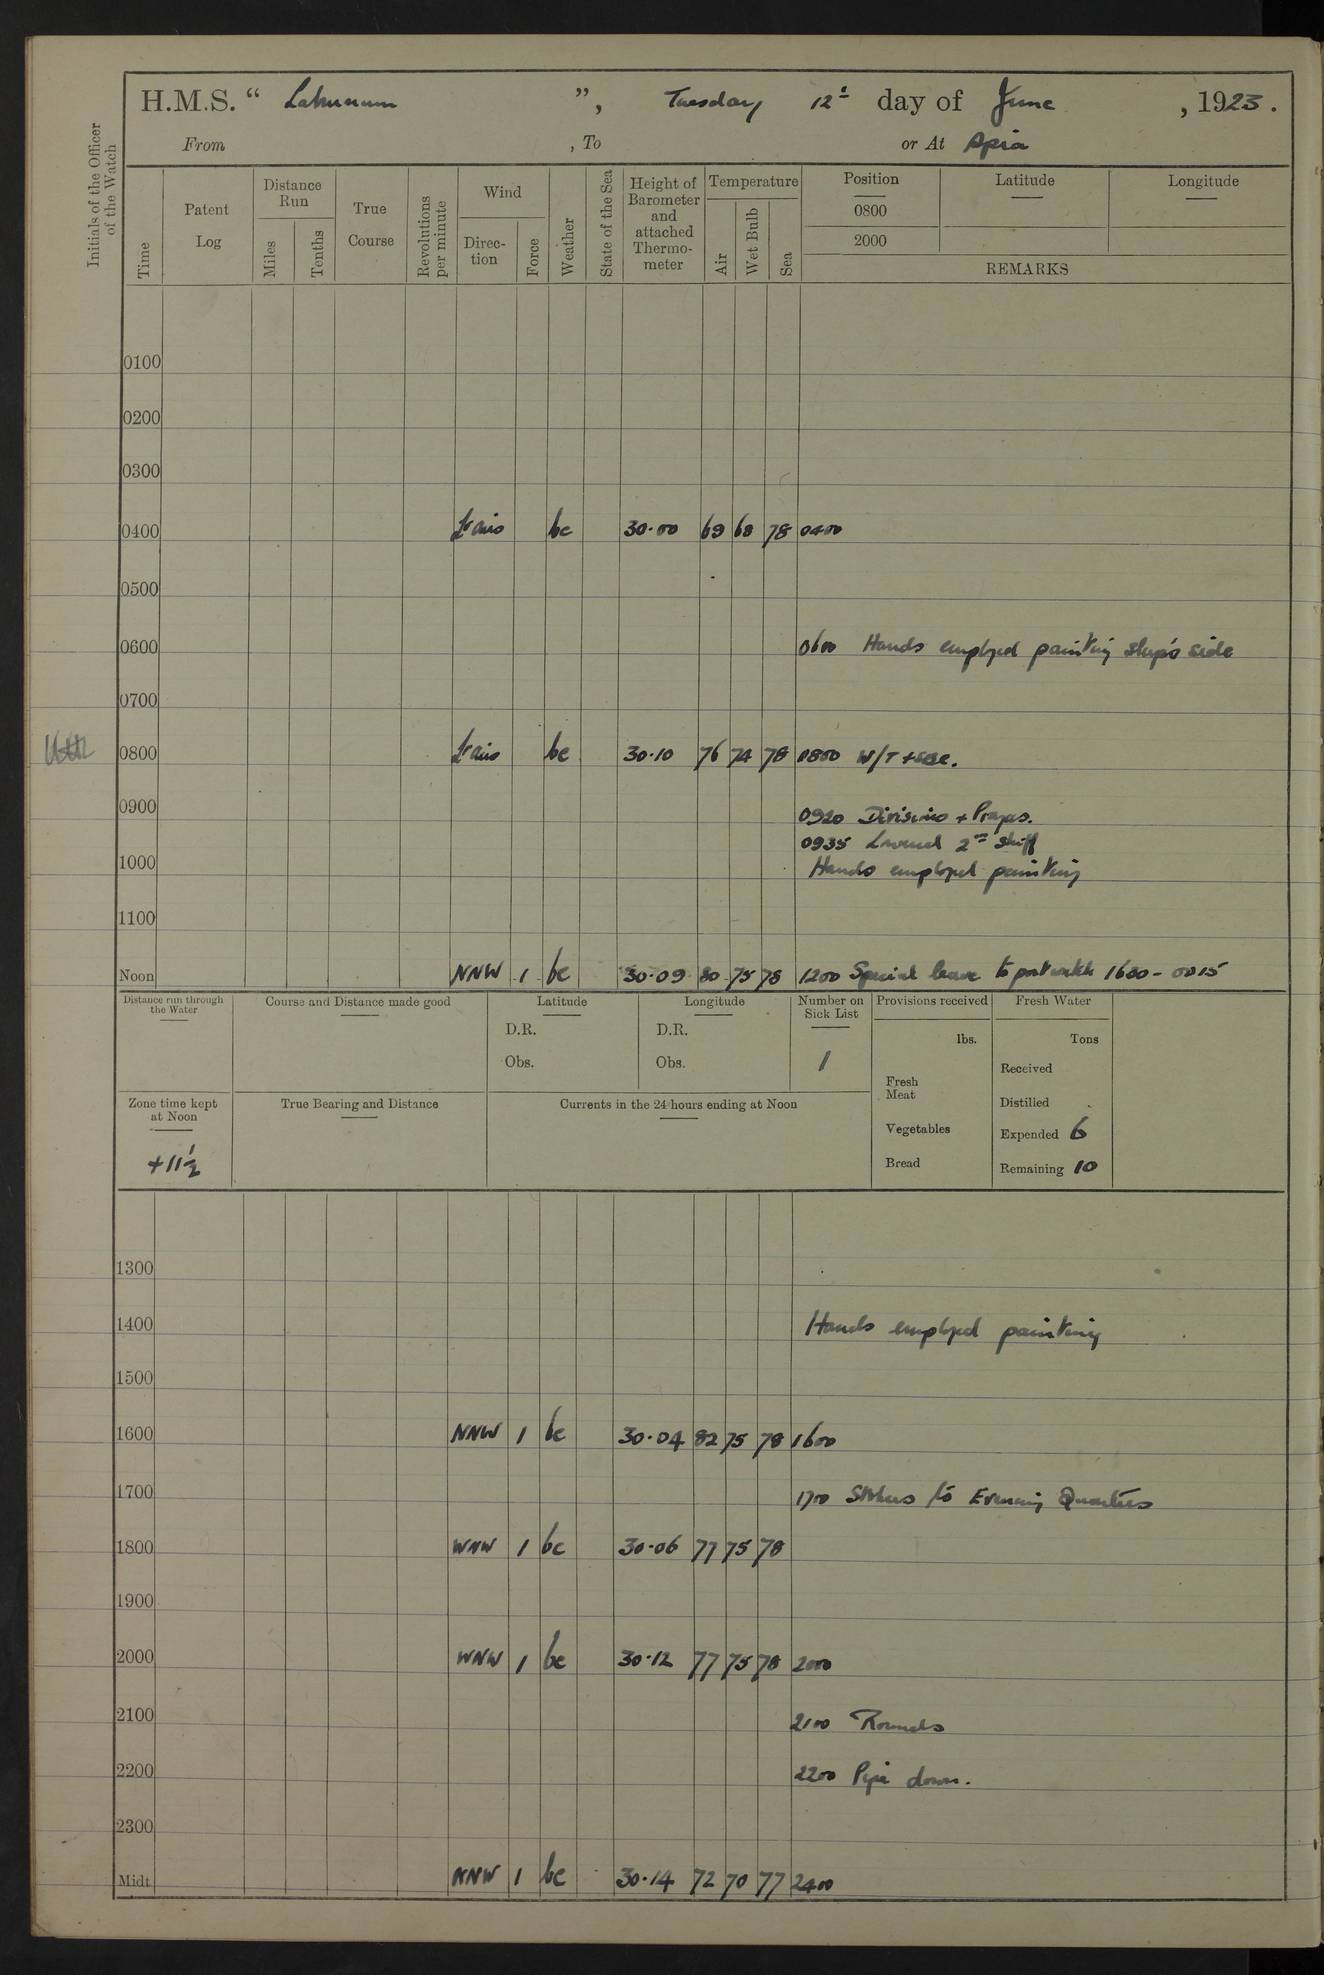 H.M.S. “ Laburnum ”, Tuesday 12th day of June , 1923.
From , To or At Apia
Initials of the Officer of the Watch
Time
Patent Log
Distance Run
Miles
Tenths
True Course
Revolutions per minute
Wind
Direc- tion
Force
Weather
State of the Sea
Height of Barometer and attached Thermo- meter
Temperature
Air
Wet Bulb
Sea
Position
0800
2000
Latitude
Longitude
REMARKS
0100
0200
0300
0400 airs bc 30.00 69 68 78 0400
0500
0600 0600 Hands employed painting ship's side
0700
0800 airs bc 30.10 76 74 78 0800 W/T +
0900 0920 Divisions + Prayers.
0935 Lowered 2nd Skiff
1000 Hands employed painting
1100
Noon NNW 1 bc 30.09 80 75 78 1200 Special leave to port watch 1630 - 0015
Distance run through the Water
Course and Distance made good
Latitude
D.R.
Obs.
Longitude
D.R.
Obs.
Number on Sick List
1
Provisions received
lbs.
Fresh Meat
Vegetables
Bread
Fresh Water
Tons
Received
Distilled
Expended 6
Remaining 10
Zone time kept at Noon
+11½
True Bearing and Distance
Currents in the 24 hours ending at Noon
1300
1400 Hands employed painting
1500
1600 NNW 1 bc 30.04 82 75 78 1600
1700 1700 Stokers to Evening Quarters
1800 WNW 1 bc 30.06 77 75 78
1900
2000 WNW 1 bc 30.12 77 75 78 2000
2100 2100 Rounds
2200 2200 Pipe down.
2300
Midt. NNW 1 bc 30.14 72 70 77 2400